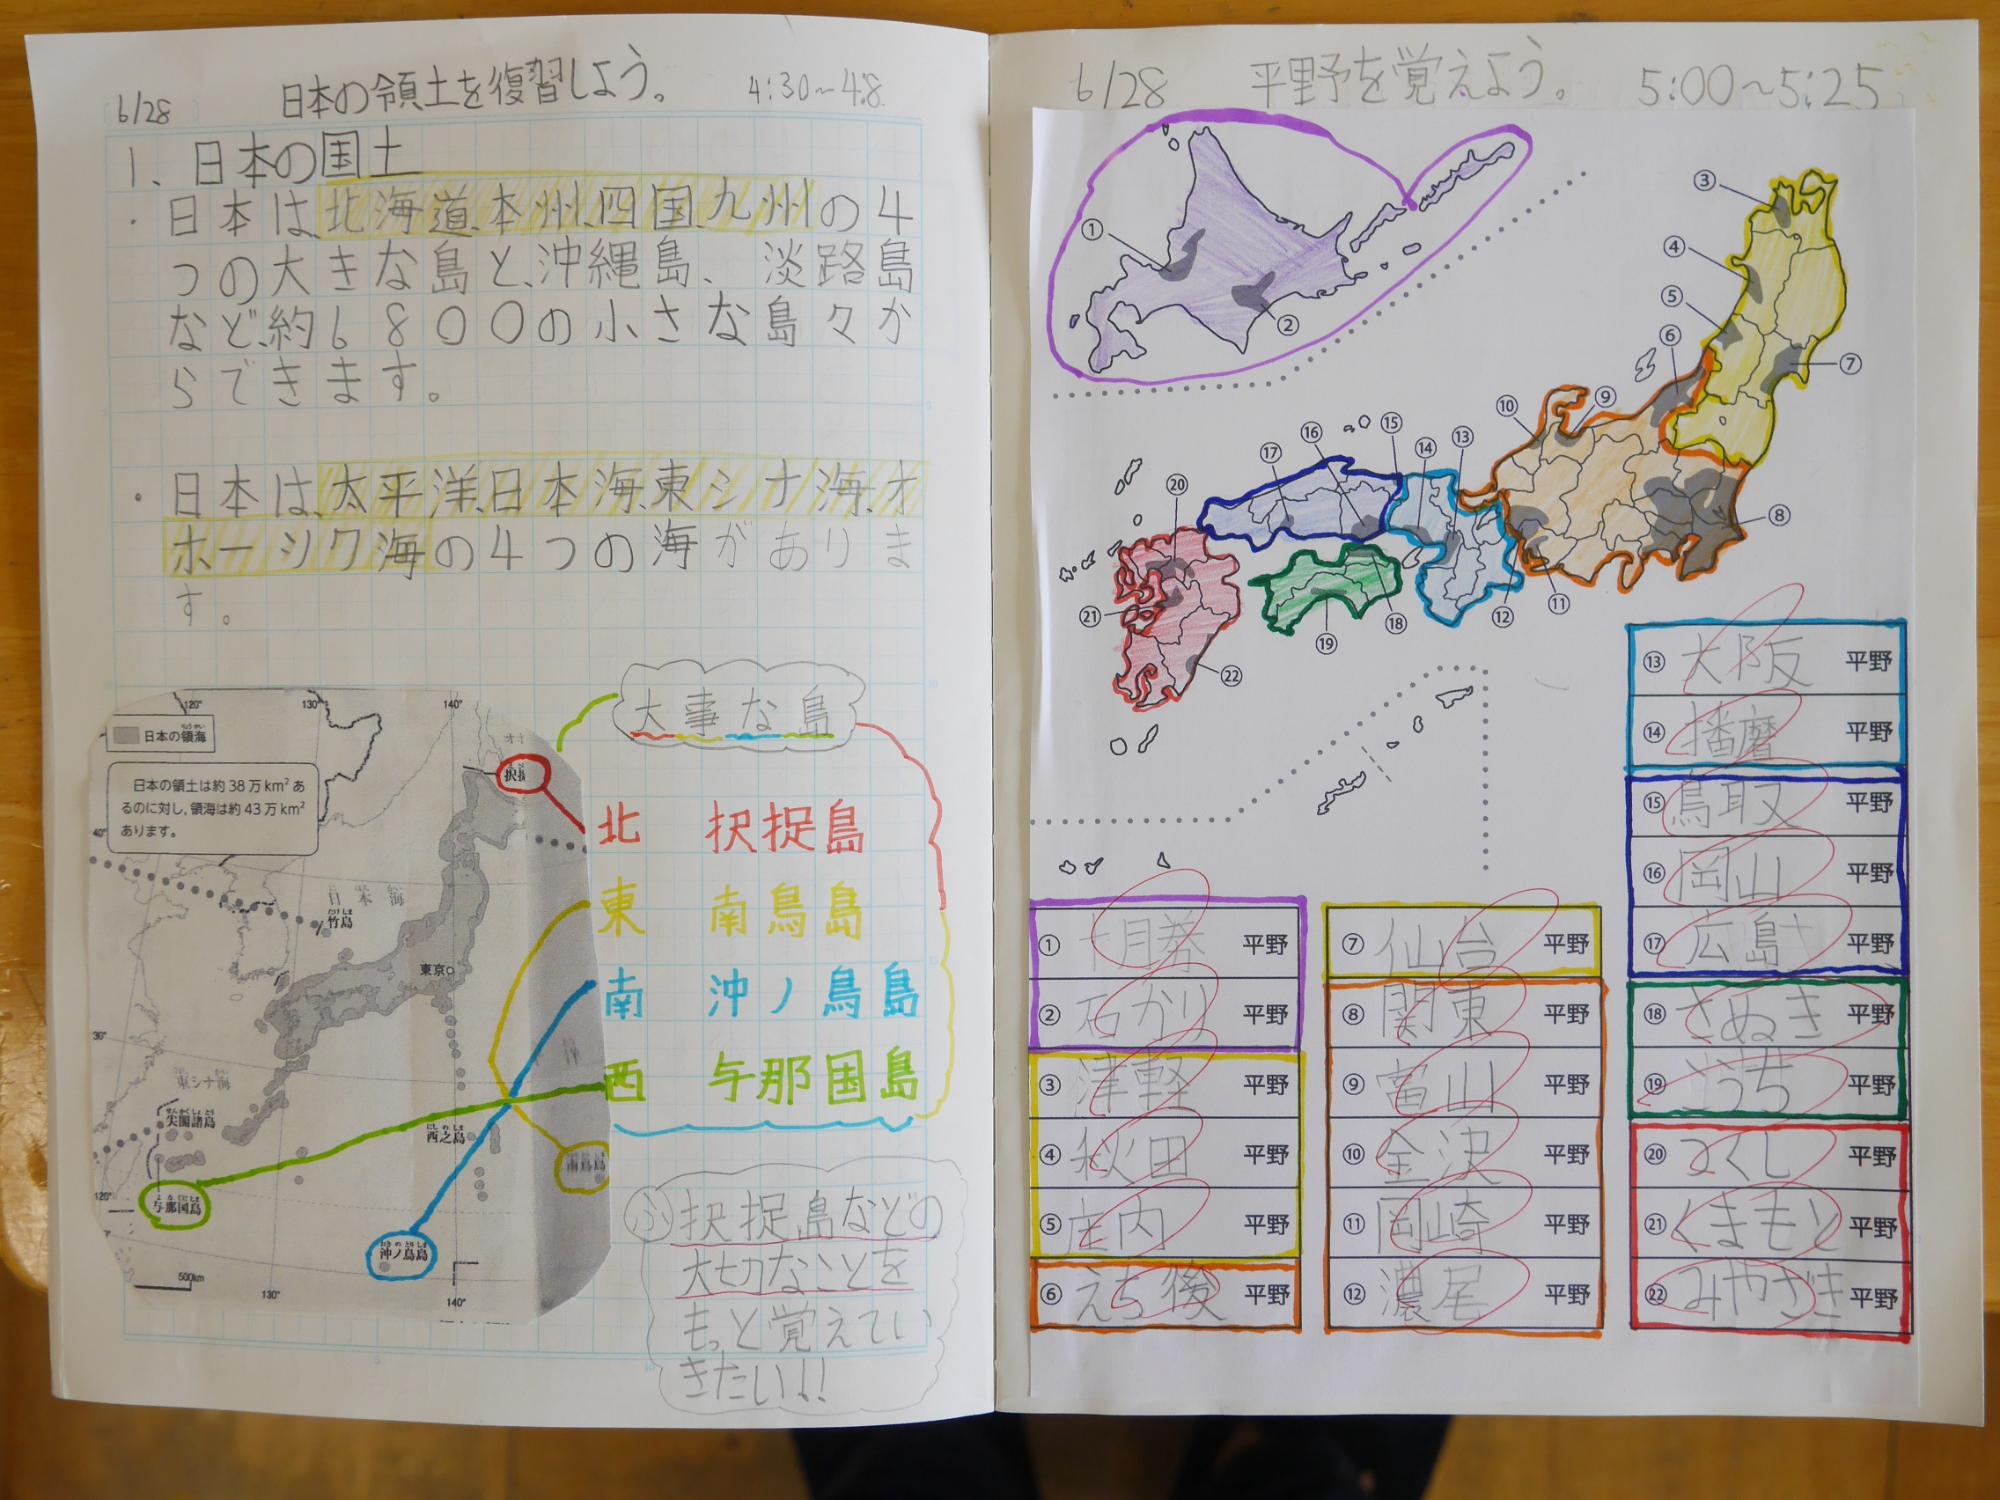 6/28 日本の領土を復習しよう。 4:30～4:8
1、日本の国土
・日本は、北海道、本州、四国、九州の4
つの大きな島と、沖縄島、淡路島
など、約6800の小さな島々か
らできます。
・日本は、太平洋、日本海、東シナ海、オ
ホーシク海の4つの海がありま
す。
大事な島
120° 130° 140°
日本の領海
日本の領土は約38万km²あ
るのに対し，領海は約43万km²
あります。
択捉
40°
日本海
竹島
東京
30°
東シナ海
尖閣諸島
西之島
南鳥島
120°
与那国島
沖ノ鳥島
500km
130° 140°
北 択捉島
東 南鳥島
南 沖ノ鳥島
西 与那国島
ふ 択捉島などの
大切なことを
もっと覚えてい
きたい!!
6/28 平野を覚えよう。 5:00～5:25
①
②
③
④
⑤
⑥
⑦
⑧
⑨
⑩
⑪
⑫
⑬
⑭
⑮
⑯
⑰
⑱
⑲
⑳
㉑
㉒
① 十勝 平野
② 石かり 平野
③ 津軽 平野
④ 秋田 平野
⑤ 庄内 平野
⑥ えち後 平野
⑦ 仙台 平野
⑧ 関東 平野
⑨ 富山 平野
⑩ 金沢 平野
⑪ 岡崎 平野
⑫ 濃尾 平野
⑬ 大阪 平野
⑭ 播磨 平野
⑮ 鳥取 平野
⑯ 岡山 平野
⑰ 広島 平野
⑱ さぬき 平野
⑲ こうち 平野
⑳ つくし 平野
㉑ くまもと 平野
㉒ みやざき 平野